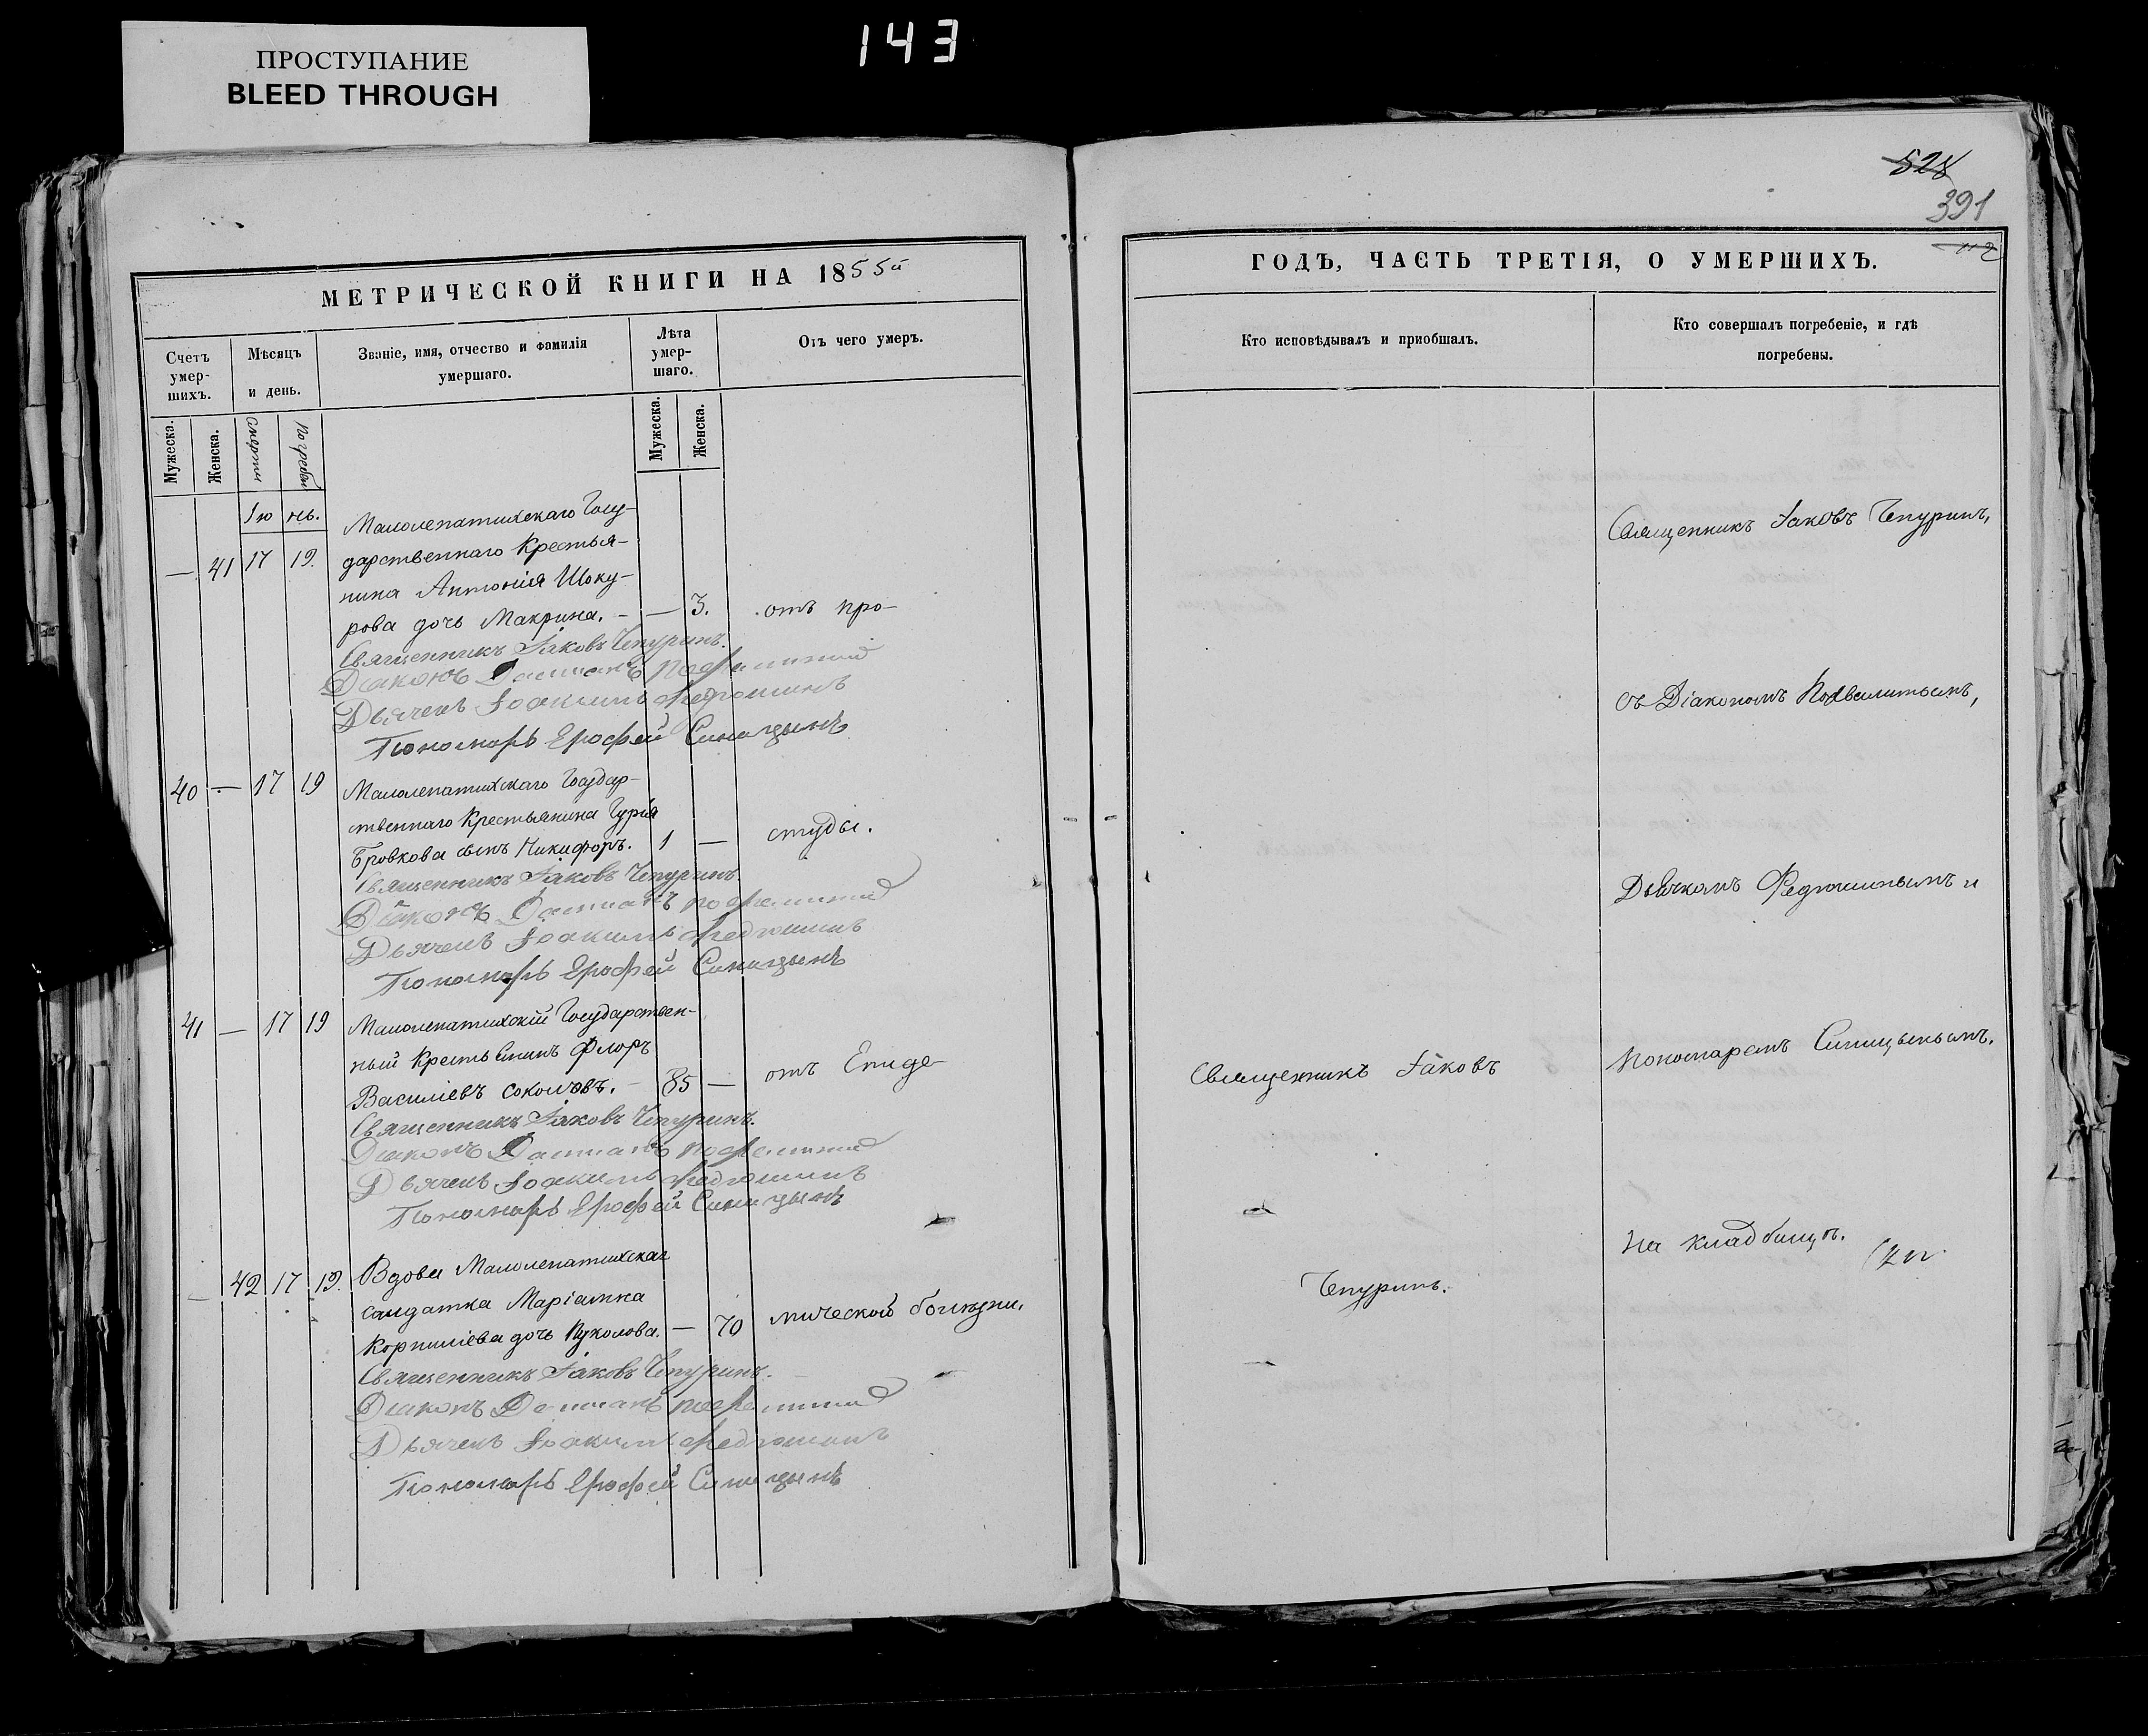 ПРОСТУПАНИЕ
BLEED THROUGH
143
МЕТРИЧЕСКОЙ КНИГИ НА 1855й
Счетъ умер-шихъ.
Мѣсяцъ и день.
Званіе, имя, отчество и фамилія умершаго.
Лѣта умер-шаго.
Отъ чего умеръ.
Мужеска.
Женска.
смерти
погребен
Мужеска.
Женска.
Іюнь.
Малолепатихскаго Госу-
— 41 17 19. дарственнаго Крестья-
нина Антонія Шоку-
рова дочь Макрина. — — 3. отъ про-
Священникъ Іаковъ Чепуринъ.
Діаконъ
Дьячекъ Іоакимъ Федюшинъ
Пономарь Ерофей Синицынъ
40 — 17 19 Малолепатихскаго Государ-
ственнаго Крестьянина Гурія
Бровкова сынъ Никифоръ. 1 — студы.
Священникъ Іаковъ Чепуринъ
Діаконъ
Дьячекъ Іоакимъ Федюшинъ
Пономарь Ерофей Синицынъ
41 — 17 19 Малолепатихскій Государствен-
ный Крестьянинъ Флоръ
Василіевъ Соколовъ. — 85 — отъ Епиде-
Священникъ Іаковъ Чепуринъ.
Діаконъ
Дьячекъ Іоакимъ Федюшинъ
Пономарь Ерофей Синицынъ
— 42 17 19. Вдова Малолепатихская
солдатка Маріамна
Корниліева дочь Куколова. — 70 мической болѣзни.
Священникъ Іаковъ Чепуринъ.
Діаконъ
Дьячекъ Іоакимъ Федюшинъ
Пономарь Ерофей Синицынъ
528
391
ГОДЪ, ЧАСТЬ ТРЕТІЯ, О УМЕРШИХЪ.
Кто исповѣдывалъ и пріобщалъ.
Кто совершалъ погребеніе, и гдѣ
погребены.
Священникъ Іаковъ Чепуринъ,
съ Діакономъ
Дьячкомъ Федюшинымъ и
Священникъ Іаковъ
Пономаремъ Синицынымъ.
на кладбищѣ.
Чепуринъ.